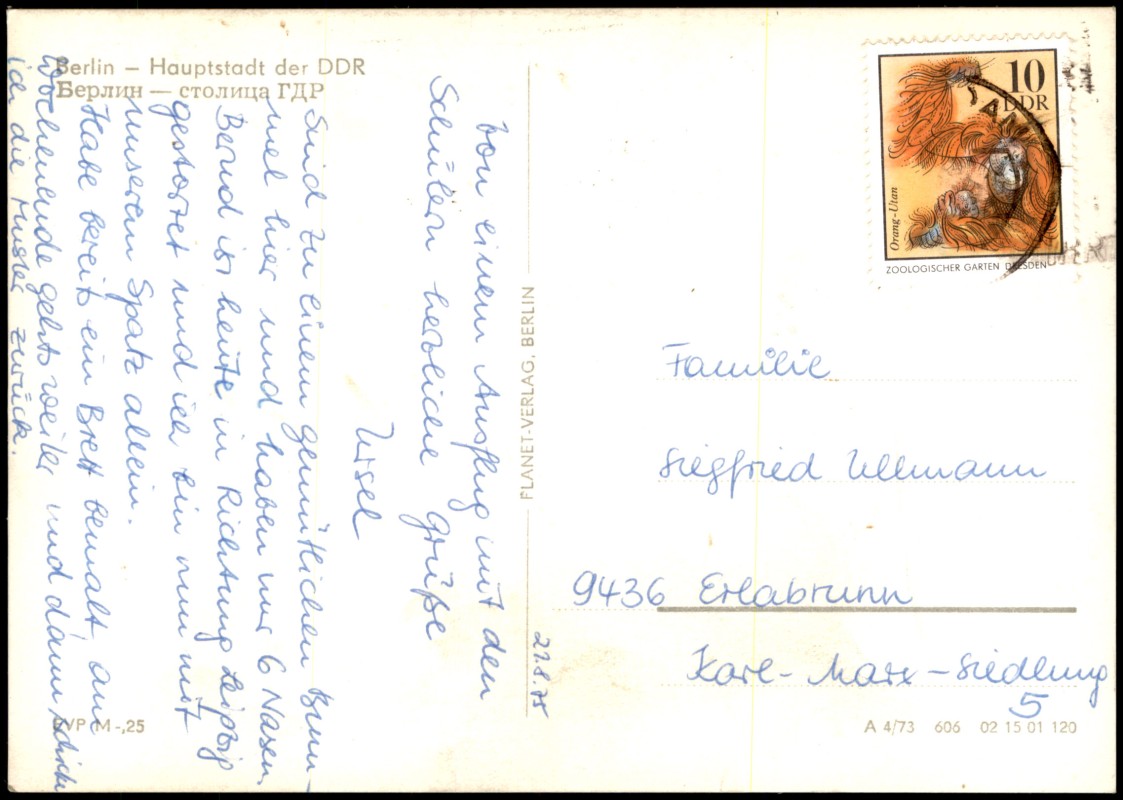 Berlin – Hauptstadt der DDR
Берлин — столица ГДР
10
DDR
Orang-Utan
ZOOLOGISCHER GARTEN DRESDEN
21.8.75
von einem Ausflug mit den
Schülern herzliche Grüße
Ursel
Sind zu einen gemütlichen Bum-
mel hier und haben nur 6 Nasen.
Bernd ist heute in Richtung Leipzig
gestartet und ich bin nun mit
unserem Spatz allein.
Habe bereits ein Brett bemalt, am
Wochenende gehts weiter und dann schicke
ich die Muster zurück.
PLANET-VERLAG, BERLIN
Familie
Siegfried Ullmann
9436 Erlabrunn
Karl-Marx-Siedlung
5
EVP M -,25
A 4/73 606 02 15 01 120